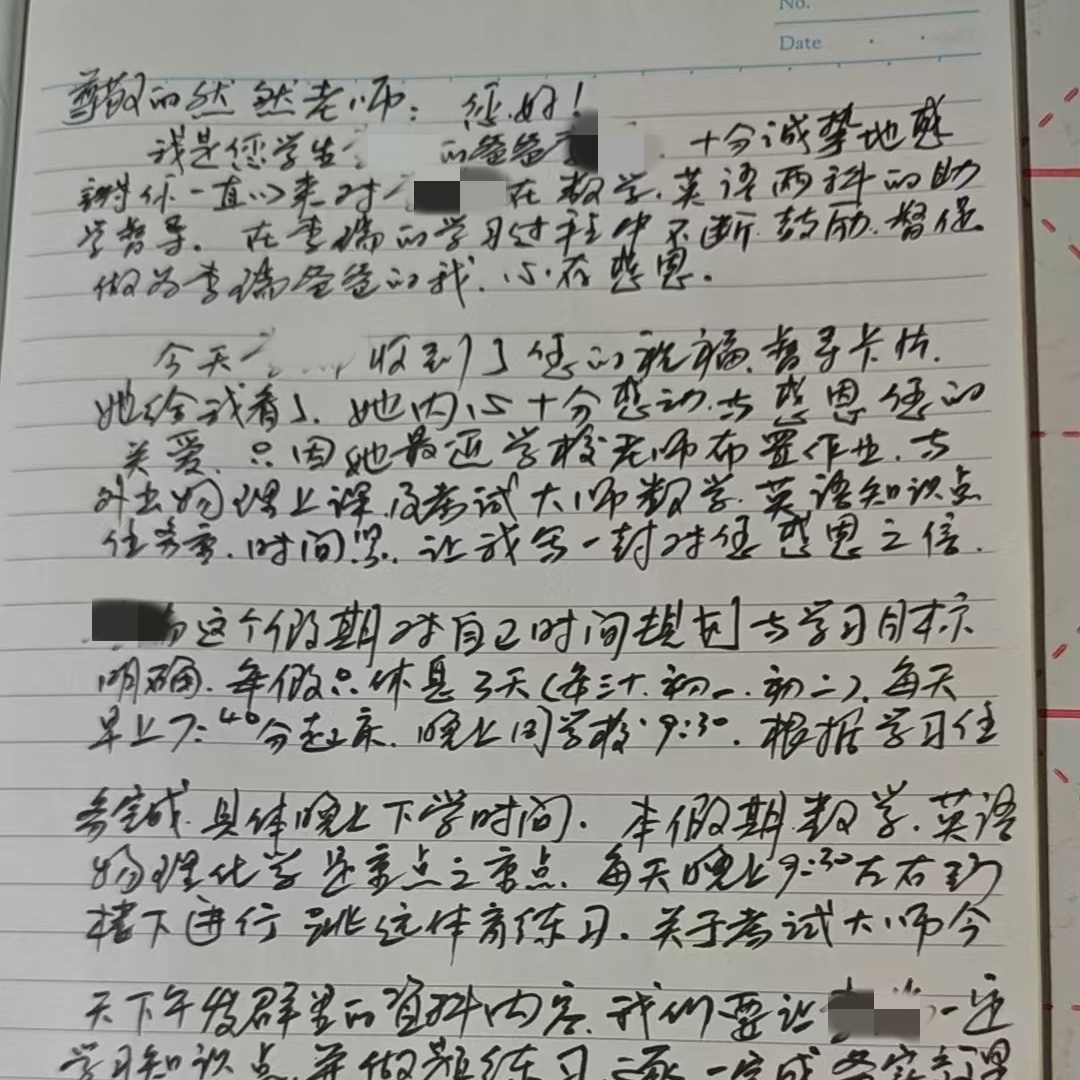 No.
Date
尊敬的然然老师：您好！
我是您学生 的爸爸 十分诚挚地感
谢你一直以来对 在数学、英语两科的助
学督导。在李瑞的学习过程中不断鼓励、督促
做为李瑞爸爸的我、心存感恩。
今天 收到了您的祝福、督导卡片、
她给我看了、她内心十分感动、与感恩您的
关爱、只因她最近学校老师布置作业、与
外出物理上课、及考试大师数学、英语知识点
任务重、时间紧、让我写一封对您感恩之信、
这个假期对自己时间规划与学习目标
明确、年假只休息3天(年三十、初一、初二)、每天
早上7:40分起床、晚上 学校9:30、根据学习任
务完成、具体晚上下学时间、本假期数学、英语
物理化学是重点之重点、每天晚上9:30左右到
楼下进行跳远体育练习、关于考试大师今
天下午发群里的资料内容、我们要让 一定
学习知识点、并做题练习、逐一完成